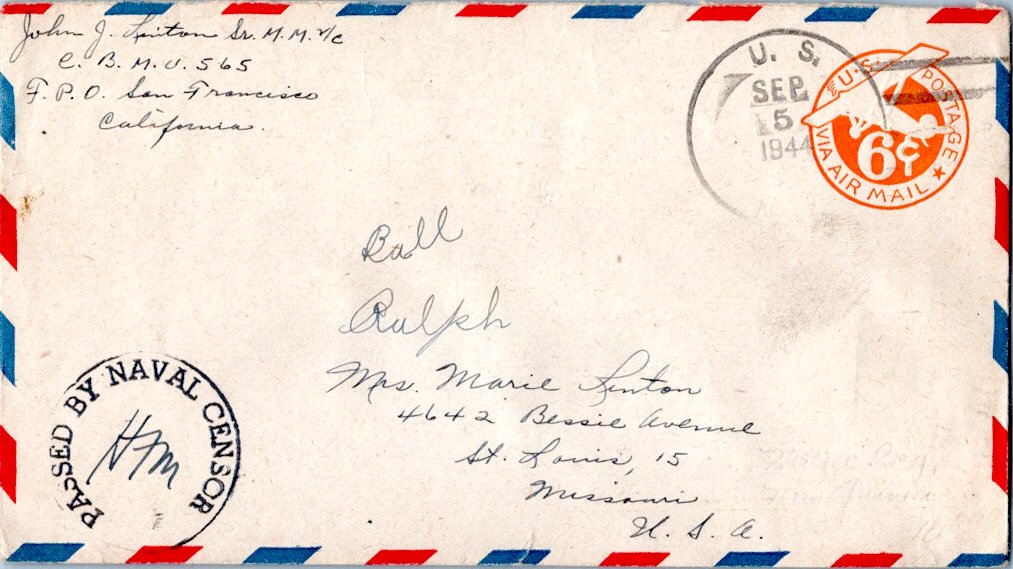 John J. Linton Sr. M.M. 1/c
C. B. M. U. 565
F. P. O. San Francisco
California.
U. S.
SEP.
15
1944
U.S. POSTAGE
6¢
VIA AIR MAIL
Ball
Ralph
Mrs. Marie Linton
4642 Bessie Avenue
St. Louis, 15
Missouri
U. S. A.
PASSED BY NAVAL CENSOR
HM